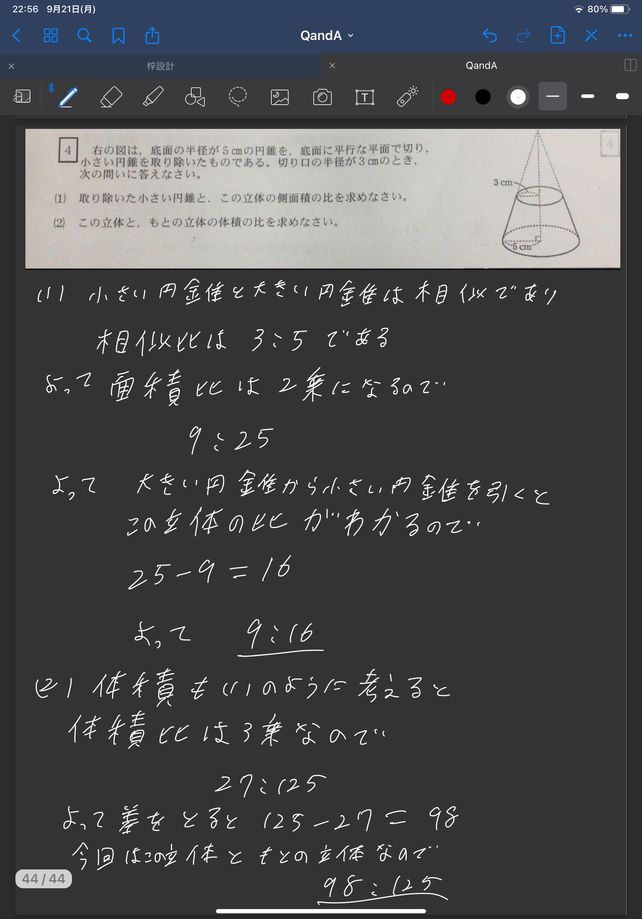 22:56 9月21日(月)
80%
QandA
梓設計
QandA
4 右の図は，底面の半径が5cmの円錐を，底面に平行な平面で切り，
小さい円錐を取り除いたものである。切り口の半径が3cmのとき，
次の問いに答えなさい。
(1) 取り除いた小さい円錐と，この立体の側面積の比を求めなさい。
(2) この立体と，もとの立体の体積の比を求めなさい。
4
3cm
5cm
(1) 小さい円錐と大きい円錐は相似であり
相似比は 3:5 である
よって 面積比は2乗になるので
9:25
よって 大きい円錐から小さい円錐を引くと
この立体の比がわかるので
25-9=16
よって 9:16
(2) 体積も(1)のように考えると
体積比は3乗なので
27:125
よって差をとると 125-27=98
今回はこの立体ともとの立体なので
98:125
44/44